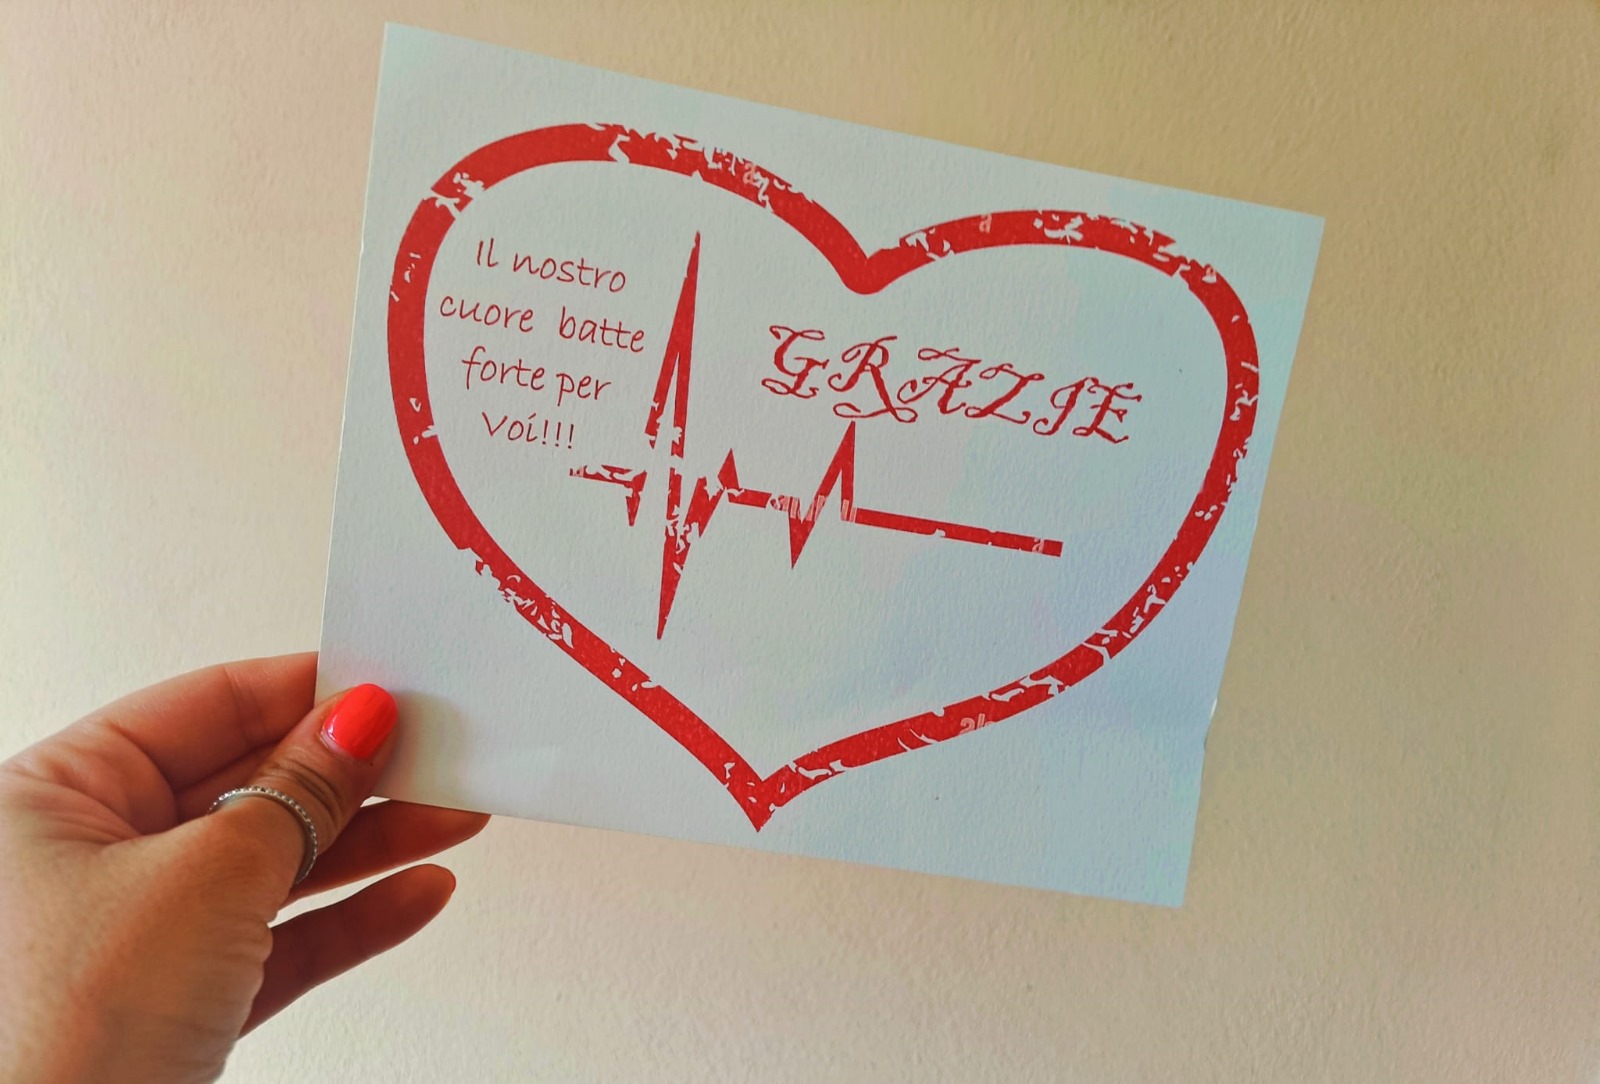 Il nostro
cuore batte
forte per
voi!!!
GRAZIE